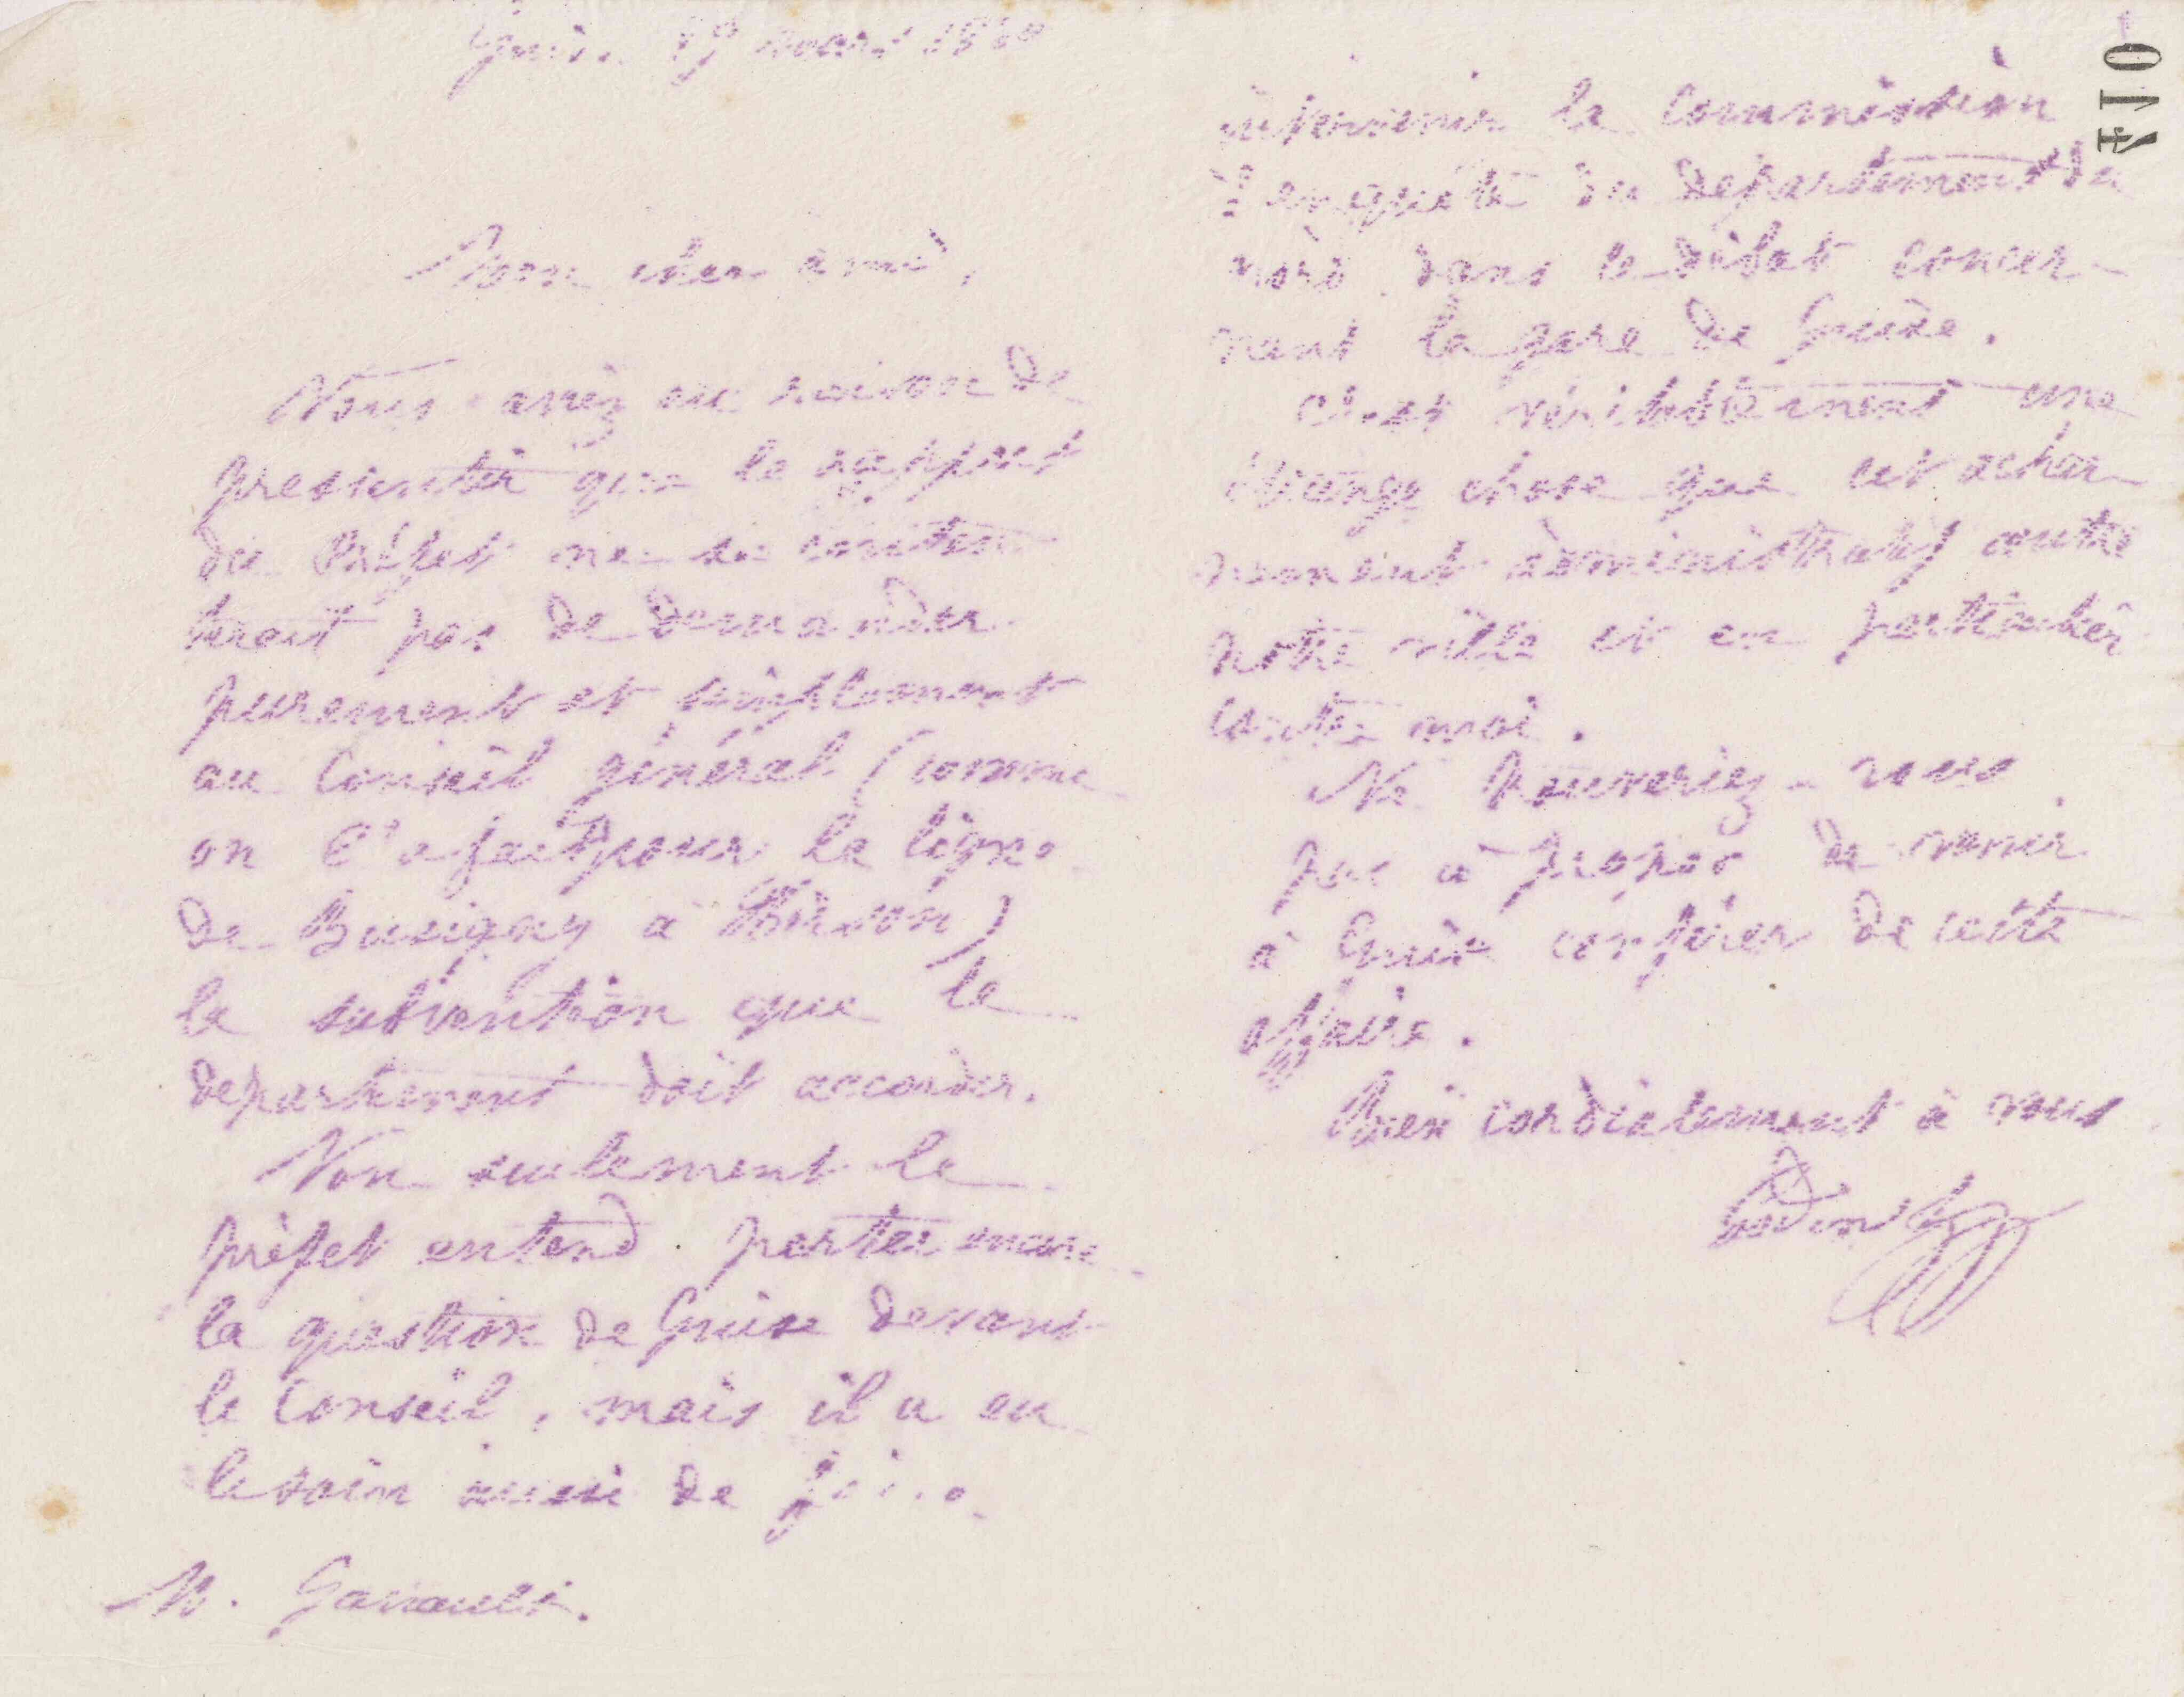 Guise. 19 mars 1880
Mon cher ami,
Vous aviez eu raison de
pressentir que le rapport
du Préfet ne se conten
terait pas de demander
purement et simplement
au Conseil général (comme
on l'a fait pour la ligne
de Busigny à Hirson)
la subvention que le
département doit accorder.
Non seulement le
préfet entend porter encore
la question de Guise devant
le Conseil, mais il a eu
le soin aussi de faire
M. Garrault.
intervenir la Commission
d'enquête du département du
nord dans le débat concer-
nant la gare de Guise.
C'est véritablement une
étrange chose que cet achar-
nement administratif contre
notre ville et en particulier
contre moi.
Ne trouveriez-vous
pas à propos de venir
à Guise conférer de cette
affaire.
bien cordialement à vous
Godin